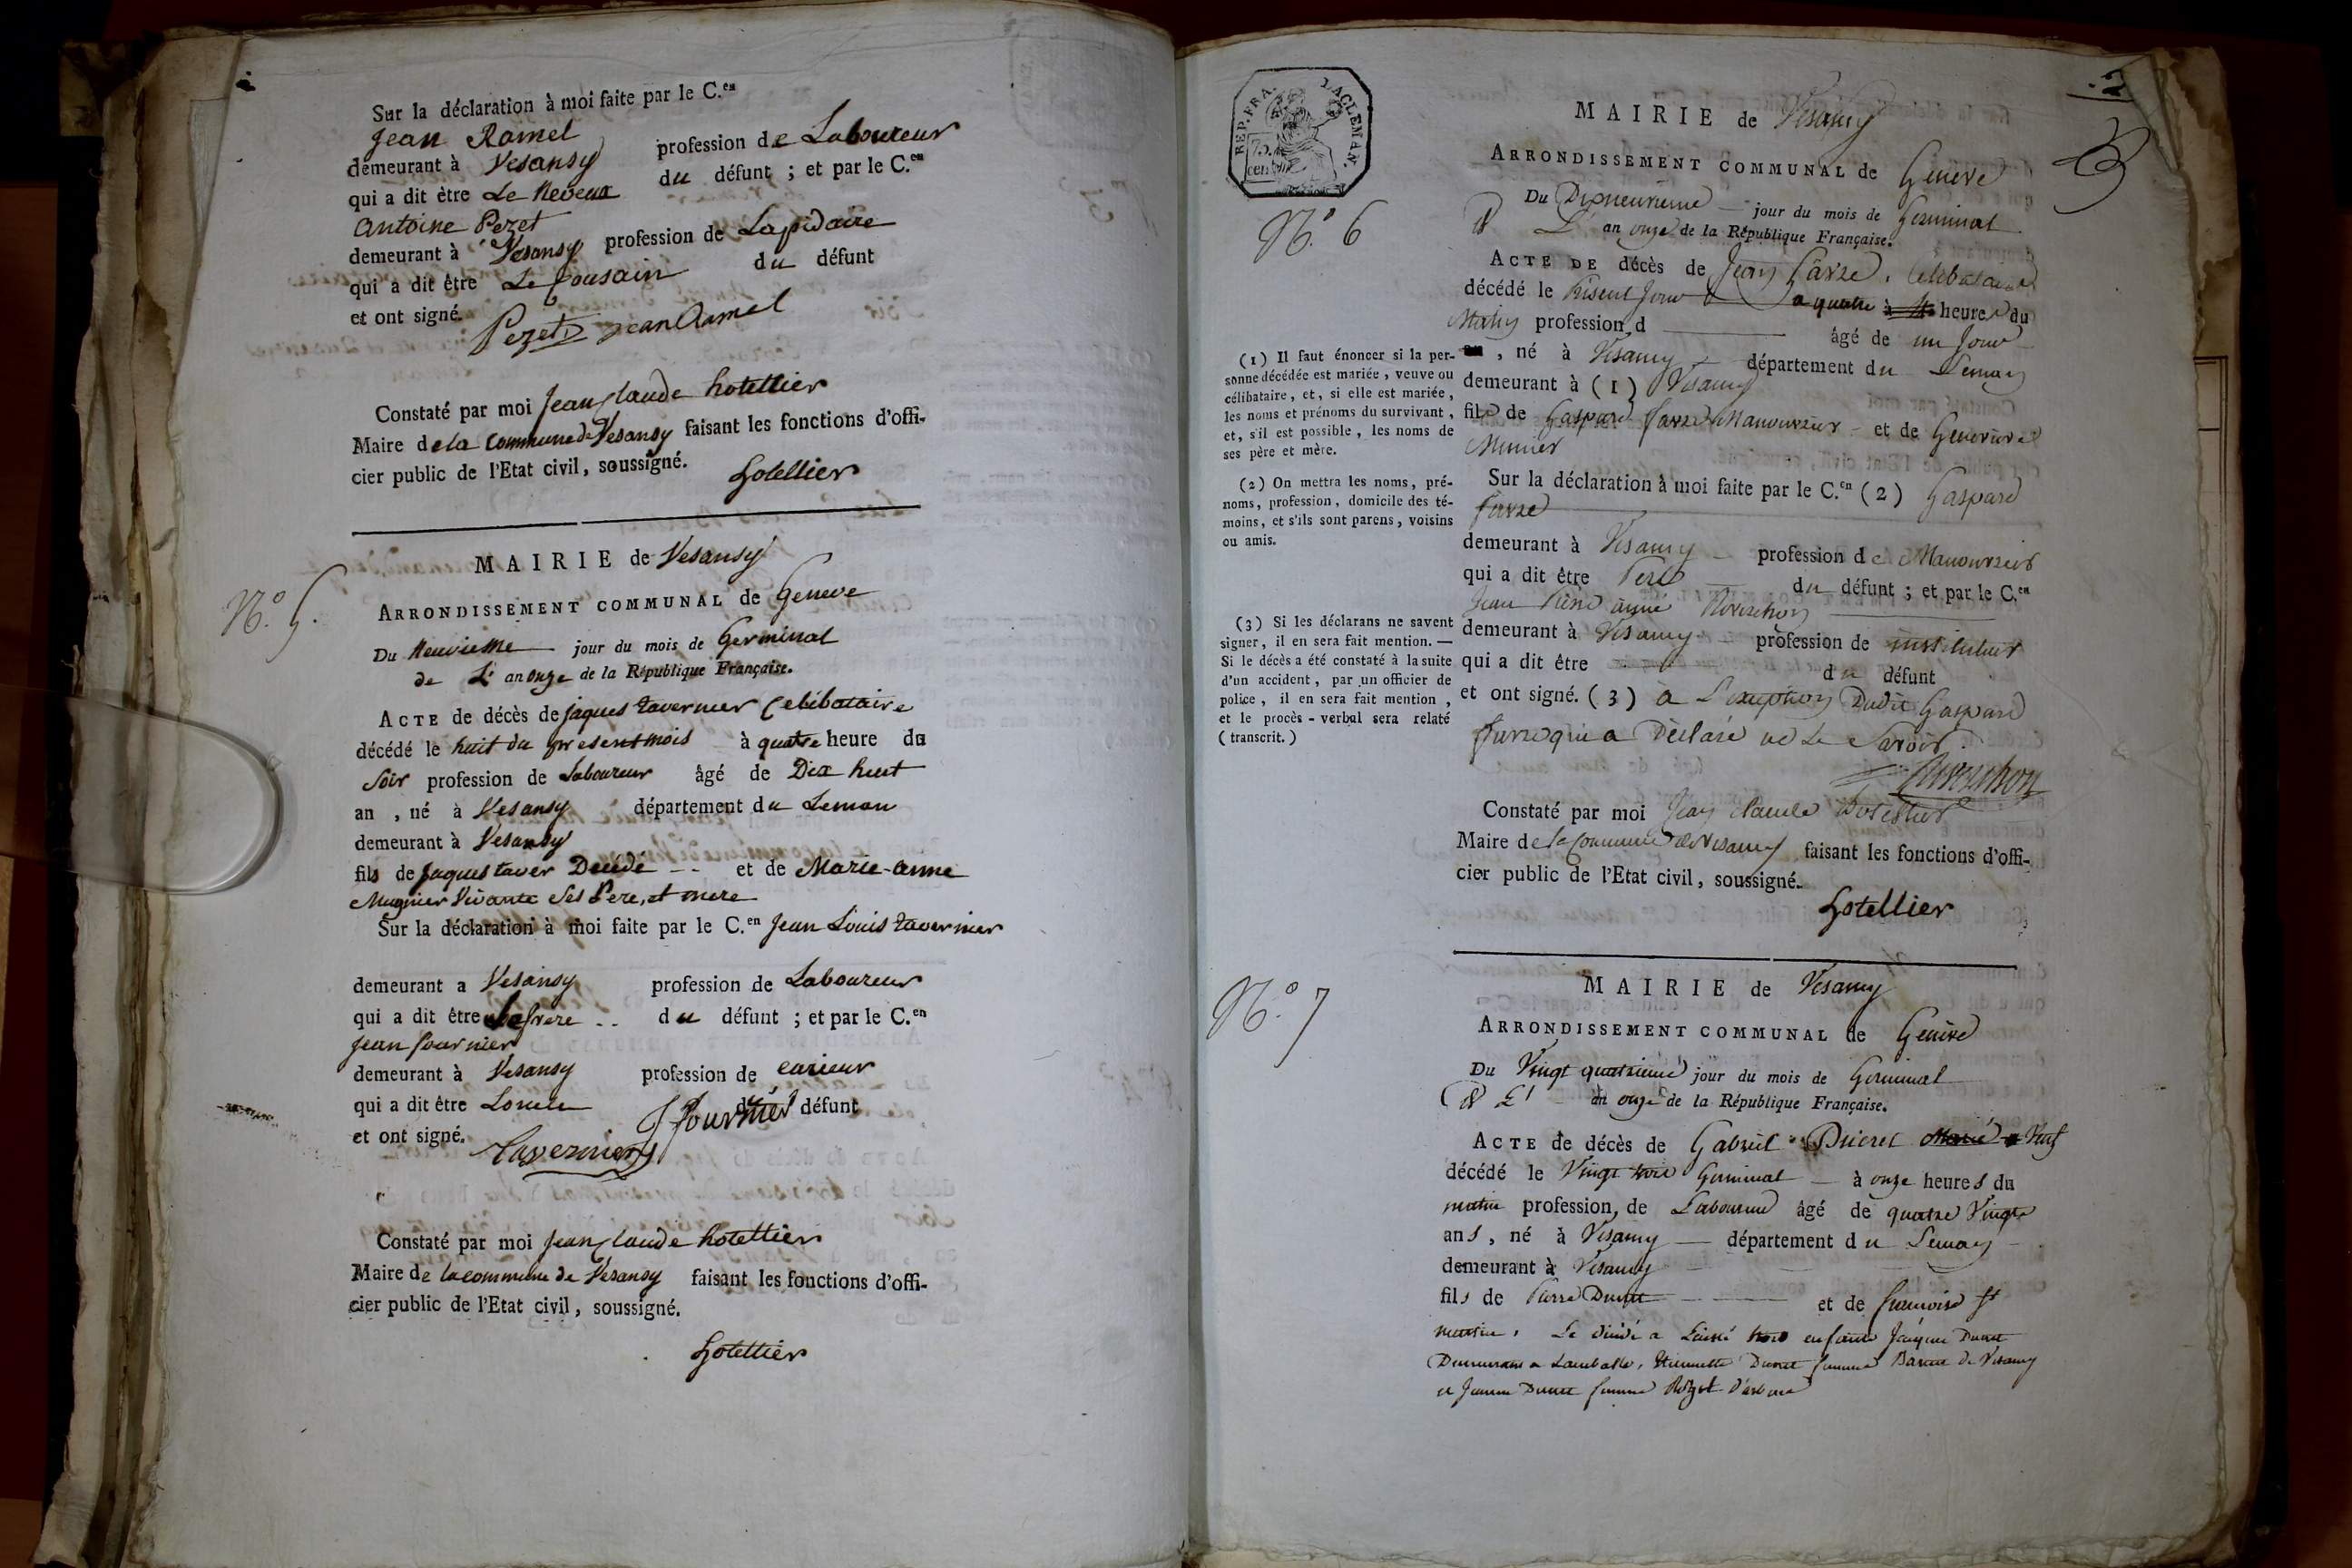 Sur la déclaration à moi faite par le C.en
Jean Ramel profession de Laboureur
demeurant à Vesansy
qui a dit être Le Neveux du défunt ; et par le C.en
antoine Pezet
demeurant à Vesansy profession de Lapidaire
qui a dit être Le Cousain du défunt
et ont signé.
Pezet Jean Ramel
Constaté par moi Jean Claude hotellier
Maire de la Commune de Vesansy faisant les fonctions d'offi-
cier public de l'Etat civil, soussigné.
Hotellier
N.° 5.
MAIRIE de Vesansy
ARRONDISSEMENT COMMUNAL de Geneve
Du Neuvieme jour du mois de Germinal
de L' an onze de la République Française.
ACTE de décès de jaques tavernier Celibataire
décédé le huit du present mois à quatre heure du
soir profession de Laboureur âgé de Dix huit
an , né à Vesansy département du Leman
demeurant à Vesansy
fils de Jaques taver Decédé et de Marie-anne
Mugnier Vivante ses Pere, et mere
Sur la déclaration à moi faite par le C.en Jean Louis tavernier
demeurant a Vesansy profession de Laboureur
qui a dit être Le frere du défunt ; et par le C.en
Jean fournier
demeurant à Vesansy profession de
qui a dit être du défunt
et ont signé.
J fournier
Tavernier
Constaté par moi Jean Claude hotellier
Maire de la commune de Vesansy faisant les fonctions d'offi-
cier public de l'Etat civil, soussigné.
Hotellier
REP. FRA.
75. centim
N.° 6
(1) Il faut énoncer si la per-
sonne décédée est mariée, veuve ou
célibataire, et, si elle est mariée,
les noms et prénoms du survivant,
et, s'il est possible, les noms de
ses père et mère.
(2) On mettra les noms, pré-
noms, profession, domicile des té-
moins, et s'ils sont parens, voisins
ou amis.
(3) Si les déclarans ne savent
signer, il en sera fait mention. —
Si le décès a été constaté à la suite
d'un accident, par un officier de
police, il en sera fait mention,
et le procès-verbal sera relaté
(transcrit.)
MAIRIE de Vesancy
ARRONDISSEMENT COMMUNAL de Geneve
Du Dixneuvieme jour du mois de Germinal
de L' an onze de la République Française.
ACTE DE décès de Jean Célibataire
décédé le Présent Jour a quatre heures du
Matin profession d âgé de un Jour
, né à Vesancy département du Leman
demeurant à (1) Vesancy
fils de Gaspard Manouvrier et de Genevieve
Munier
Sur la déclaration à moi faite par le C.en (2) Gaspard
demeurant à Vesancy profession de Manouvrier
qui a dit être Pere du défunt ; et par le C.en
Jean Rene aimé
demeurant à Vesancy profession de instituteur
qui a dit être du défunt
et ont signé. (3) à L'exception Dudit Gaspard
qui a Déclaré ne Le Savoir.
Constaté par moi Jean Claude hotellier
Maire de la Commune de Vesancy faisant les fonctions d'offi-
cier public de l'Etat civil, soussigné.
Hotellier
N.° 7
MAIRIE de Vesancy
ARRONDISSEMENT COMMUNAL de Geneve
Du Vingt quatrieme jour du mois de Germinal
de L' an onze de la République Française.
ACTE de décès de Gabriel Ducret Marié Veuf
décédé le Vingt trois Germinal à onze heures du
matin profession de Laboureur âgé de quatre Vingts
ans, né à Vesancy département du Leman
demeurant à Vesancy
fils de Pierre Ducret et de francoise
. Le décédé a Laissé trois enfants Jacques Ducret
Demeurant a Lamballe, Etiennette Ducret femme de Vesancy
et Jeanne Ducret femme